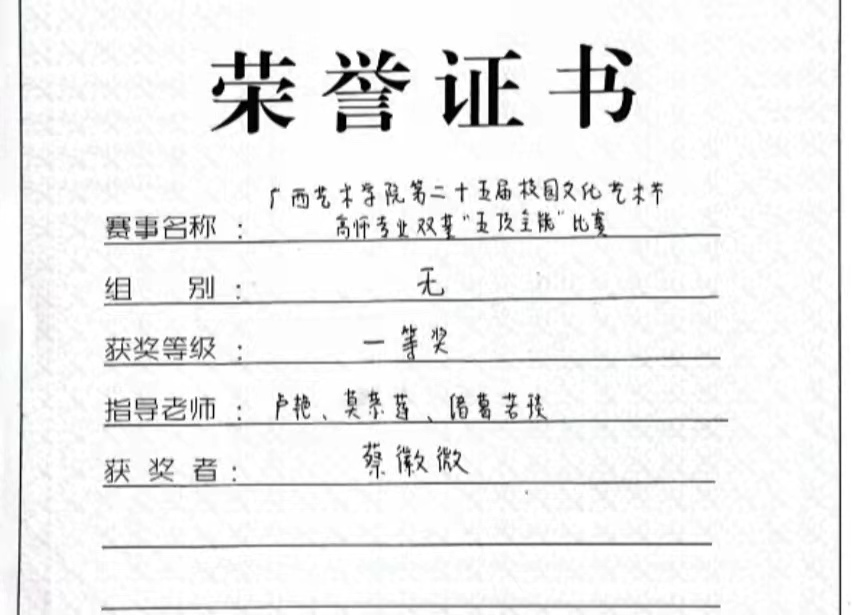 荣誉证书
广西艺术学院第二十五届校园文化艺术节
赛事名称: 高师专业双基"五项全能"比赛
组别: 无
获奖等级: 一等奖
指导老师: 卢艳、莫蓉莲、诸葛若瑛
获奖者: 蔡徽微